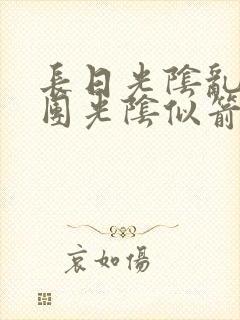 長日光陰亂
團光陰似箭
哀如傷